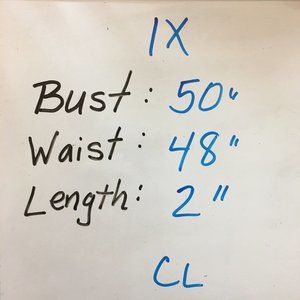 1X
Bust: 50"
Waist: 48"
Length: 2"
CL